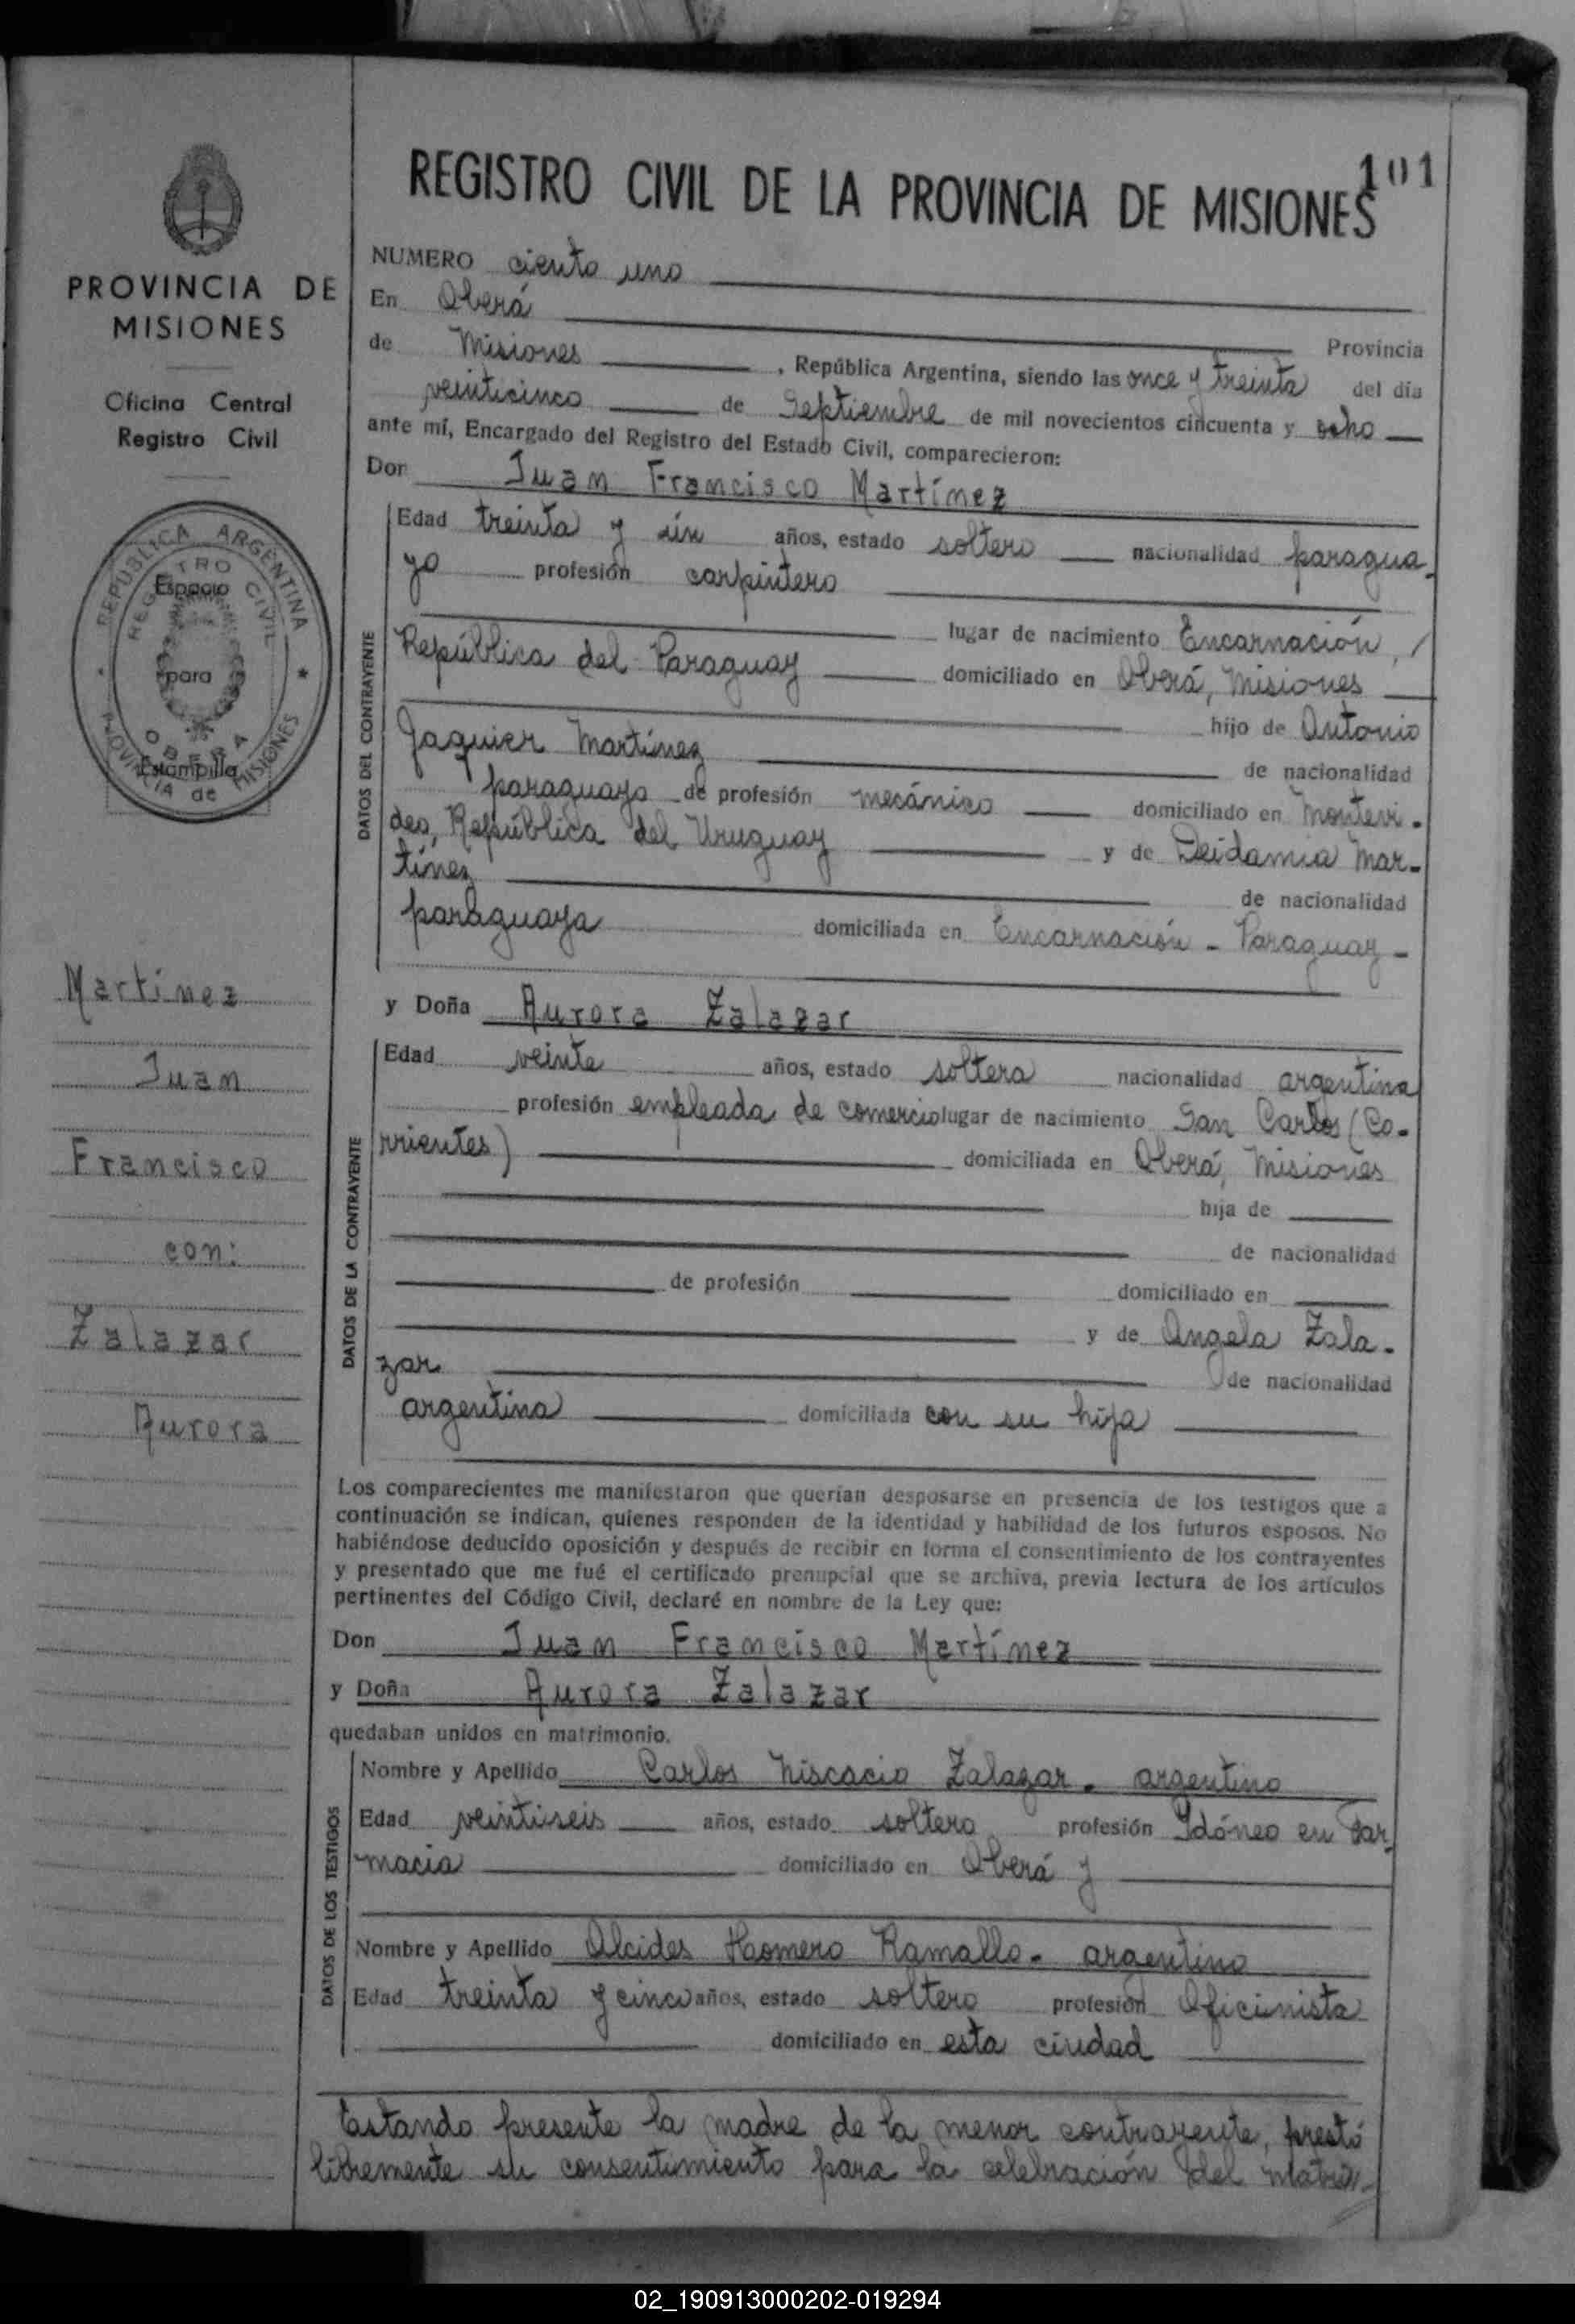 101
REGISTRO CIVIL DE LA PROVINCIA DE MISIONES
PROVINCIA DE
MISIONES
Oficina Central
Registro Civil
REPUBLICA ARGENTINA
REGISTRO CIVIL
Espacio
para
Estampilla
OBERA
PROVINCIA de MISIONES
Martínez
Juan
Francisco
con:
Zalazar
Aurora
NUMERO ciento uno
En Oberá
Provincia
de Misiones , República Argentina, siendo las once y treinta del día
veinticinco de Septiembre de mil novecientos cincuenta y ocho
ante mí, Encargado del Registro del Estado Civil, comparecieron:
Don Juan Francisco Martínez
DATOS DEL CONTRAYENTE
Edad treinta y un años, estado soltero nacionalidad paragua-
yo profesión carpintero
lugar de nacimiento Encarnación,
República del Paraguay domiciliado en Oberá, Misiones
hijo de Antonio
Jaquier Martínez
de nacionalidad
paraguayo de profesión mecánico domiciliado en Montevi-
deo, República del Uruguay y de Deidamia Mar-
tínez
de nacionalidad
paraguaya domiciliada en Encarnación - Paraguay -
y Doña Aurora Zalazar
DATOS DE LA CONTRAYENTE
Edad veinte años, estado soltera nacionalidad argentina
profesión empleada de comercio lugar de nacimiento San Carlos (Co-
rrientes) domiciliada en Oberá, Misiones
hija de
de nacionalidad
de profesión domiciliado en
y de Angela Zala-
zar de nacionalidad
argentina domiciliada con su hija
Los comparecientes me manifestaron que querían desposarse en presencia de los testigos que a
continuación se indican, quienes responden de la identidad y habilidad de los futuros esposos. No
habiéndose deducido oposición y después de recibir en forma el consentimiento de los contrayentes
y presentado que me fué el certificado prenupcial que se archiva, previa lectura de los artículos
pertinentes del Código Civil, declaré en nombre de la Ley que:
Don Juan Francisco Martínez
y Doña Aurora Zalazar
quedaban unidos en matrimonio.
DATOS DE LOS TESTIGOS
Nombre y Apellido Carlos Niscacio Zalazar - argentino
Edad veintiseis años, estado soltero profesión Idóneo en Far-
macia domiciliado en Oberá y
Nombre y Apellido Alcides Haomero Ramallo - argentino
Edad treinta y cinco años, estado soltero profesión Oficinista
domiciliado en esta ciudad
Estando presente la madre de la menor contrayente, prestó
libremente su consentimiento para la celebración del matri-
02_190913000202-019294